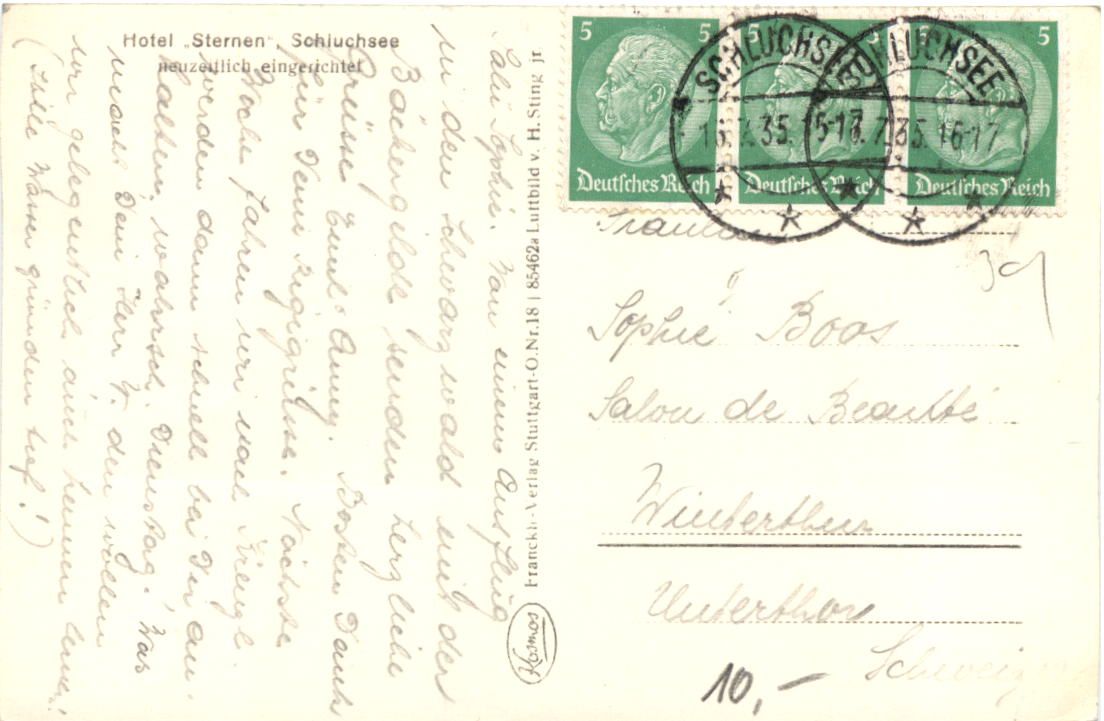 Hotel „Sternen", Schluchsee
neuzeitlich eingerichtet
Salü Sophie. Von einem Ausflug
in den Schwarzwald mit der
Bäckersgilde senden herzliche
Grüsse Emil & Anny. Besten Dank
für Deine Rigigrüsse. Nächste
Woche fahren wir nach Kreuzl.
werden dann schnell bei Dir an-
halten, wahrsch. Dienstag. Was
macht Dein Herr Y. den wollen
wir gelegentlich auch kennen lernen!
(Stille Wasser gründen tief!)
Franckh-Verlag Stuttgart-O. Nr. 18 | 85462a Luftbild v. H. Sting jr
Kosmos
5 5
Deutsches Reich
5
Deutsches Reich
5 5
Deutsches Reich
SCHLUCHSEE
7.35.15-17
SCHLUCHSEE
7.35.16-17
Fräulein
Sophie Boos
Salon de Beauté
Winterthur
Unterthor
Schweiz
10,-